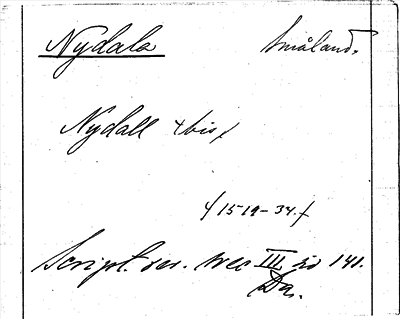 Nydala Småland.
Nydall /bis/
/1519-34./
Script. rer. svec III sid 141.
Da.